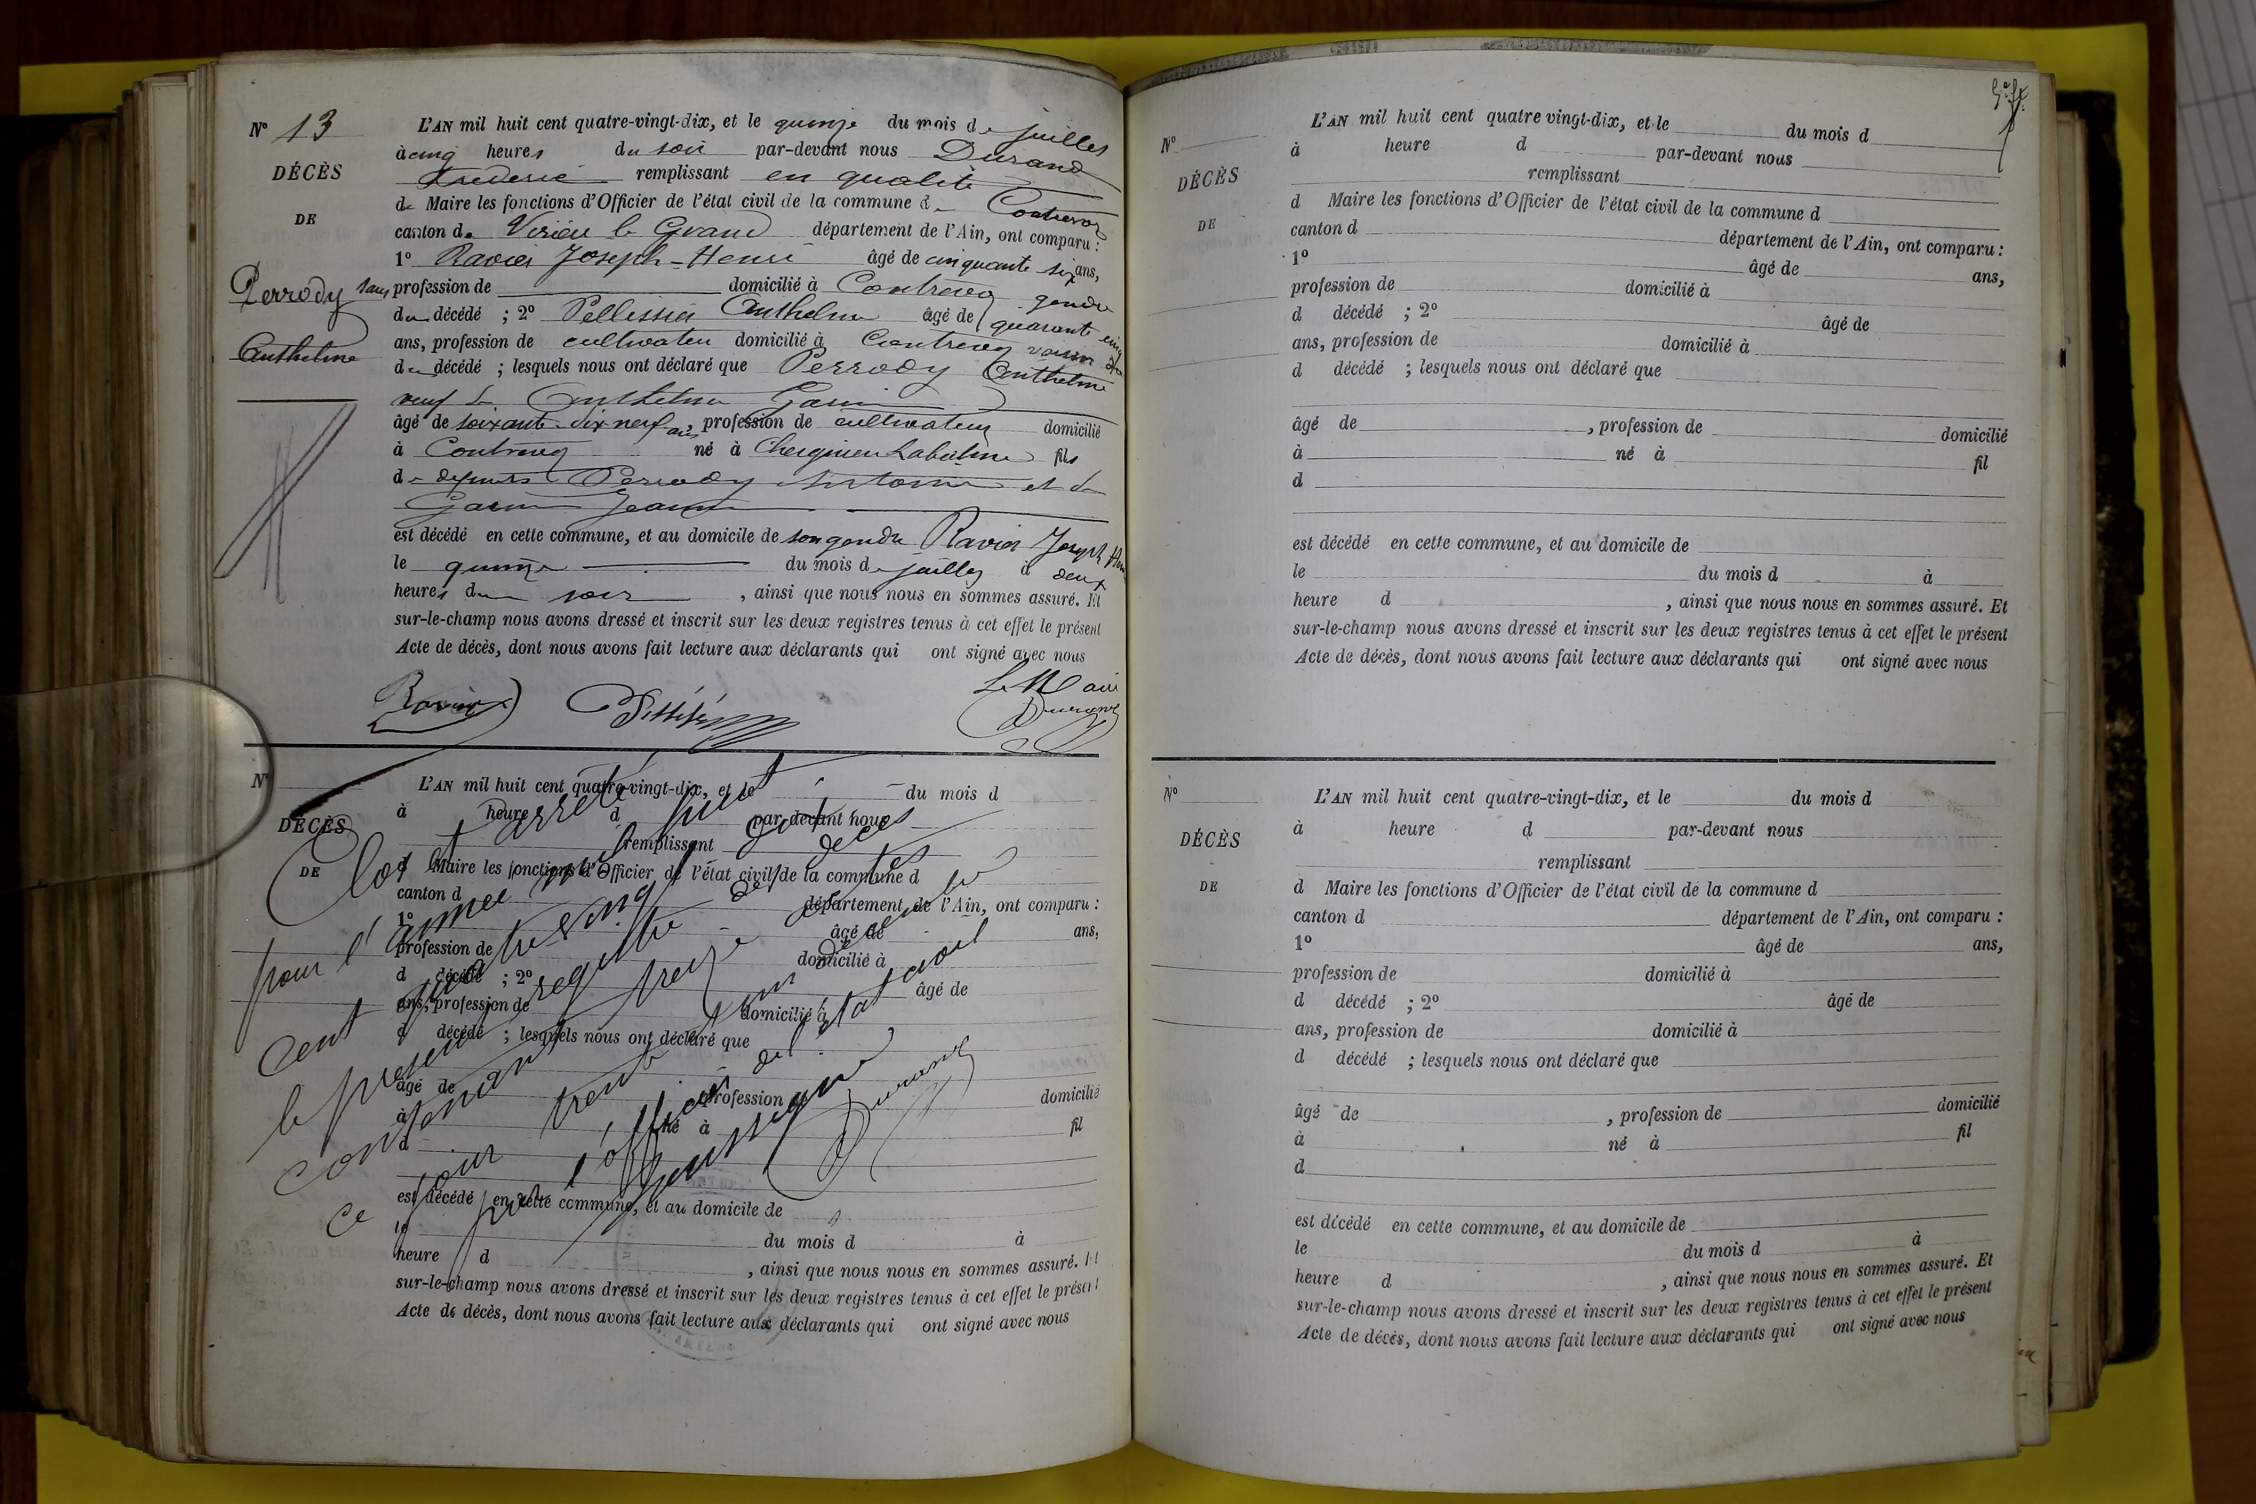 N° 13
DÉCÈS
DE
Perrody
Anthelme
L'AN mil huit cent quatre-vingt-dix, et le quinze du mois de juillet
à cinq heures du soir par-devant nous Durand
Frédéric remplissant en qualité
de Maire les fonctions d'Officier de l'état civil de la commune de Contrevoz
canton de Virieu le Grand département de l'Ain, ont comparu :
1° Ravier Joseph-Henri âgé de cinquante six ans,
sans profession de domicilié à Contrevoz gendre
du décédé ; 2° Pellissier Anthelme âgé de quarante cinq
ans, profession de cultivateur domicilié à Contrevoz voisin
du décédé ; lesquels nous ont déclaré que Perrody Anthelme
veuf de Anthelme Garin
âgé de soixante-dix neuf ans, profession de cultivateur domicilié
à Contrevoz né à Cheignieu Labalme fils
de défunts Perrody Antoine et de
Garin Jeanne
est décédé en cette commune, et au domicile de son gendre Ravier Joseph Henri
le quinze du mois de juillet à deux
heures du soir, ainsi que nous nous en sommes assuré. Et
sur-le-champ nous avons dressé et inscrit sur les deux registres tenus à cet effet le présent
Acte de décès, dont nous avons fait lecture aux déclarants qui ont signé avec nous
Ravier
Le Maire
Durand
N°
DÉCÈS
DE
L'AN mil huit cent quatre-vingt-dix, et le du mois d
à heure d par-devant nous
remplissant
d Maire les fonctions d'Officier de l'état civil de la commune d
canton d département de l'Ain, ont comparu :
1° âgé de ans,
profession de domicilié à
d décédé ; 2° âgé de
ans, profession de domicilié à
d décédé ; lesquels nous ont déclaré que
âgé de profession domicilié
à né à fil
d
est décédé en cette commune, et au domicile de
le du mois d à
heure d , ainsi que nous nous en sommes assuré. Et
sur-le-champ nous avons dressé et inscrit sur les deux registres tenus à cet effet le présent
Acte de décès, dont nous avons fait lecture aux déclarants qui ont signé avec nous
Clos et arrêté
pour l'année mil huit
cent quatre vingt dix
le présent registre des décès
contenant treize actes
ce jour trente et un décembre
par l'officier de l'état civil
soussigné
Durand
N°
DÉCÈS
DE
L'AN mil huit cent quatre vingt-dix, et le du mois d
à heure d par-devant nous
remplissant
d Maire les fonctions d'Officier de l'état civil de la commune d
canton d département de l'Ain, ont comparu :
1° âgé de ans,
profession de domicilié à
d décédé ; 2° âgé de
ans, profession de domicilié à
d décédé ; lesquels nous ont déclaré que
âgé de , profession de domicilié
à né à fil
d
est décédé en cette commune, et au domicile de
le du mois d à
heure d , ainsi que nous nous en sommes assuré. Et
sur-le-champ nous avons dressé et inscrit sur les deux registres tenus à cet effet le présent
Acte de décès, dont nous avons fait lecture aux déclarants qui ont signé avec nous
N°
DÉCÈS
DE
L'AN mil huit cent quatre-vingt-dix, et le du mois d
à heure d par-devant nous
remplissant
d Maire les fonctions d'Officier de l'état civil de la commune d
canton d département de l'Ain, ont comparu :
1° âgé de ans,
profession de domicilié à
d décédé ; 2° âgé de
ans, profession de domicilié à
d décédé ; lesquels nous ont déclaré que
âgé de , profession de domicilié
à né à fil
d
est décédé en cette commune, et au domicile de
le du mois d à
heure d , ainsi que nous nous en sommes assuré. Et
sur-le-champ nous avons dressé et inscrit sur les deux registres tenus à cet effet le présent
Acte de décès, dont nous avons fait lecture aux déclarants qui ont signé avec nous